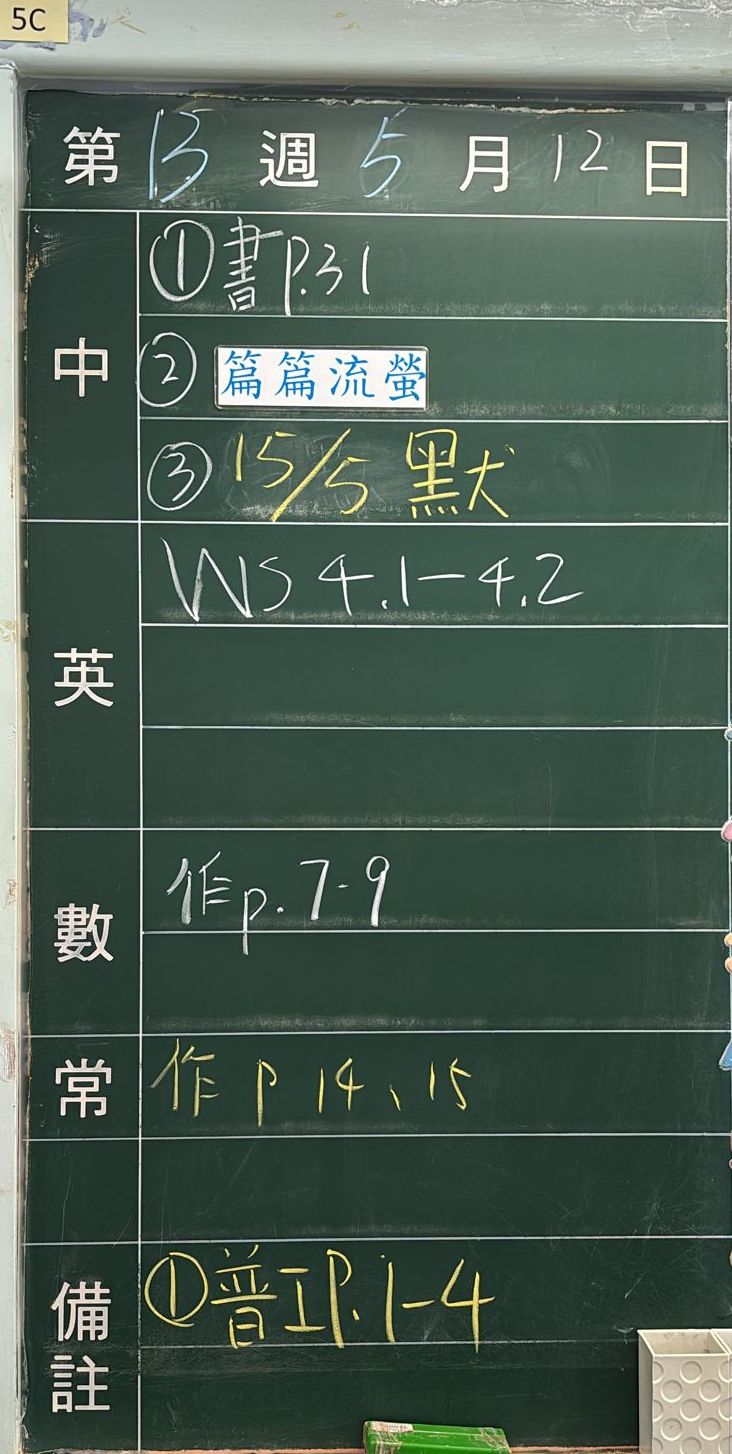 5C
第13週5月12日
中
①書P.31
②篇篇流螢
③15/5 默
英
WS 4.1-4.2
數
作p.7-9
常
作P 14、15
備註
①普工P.1-4